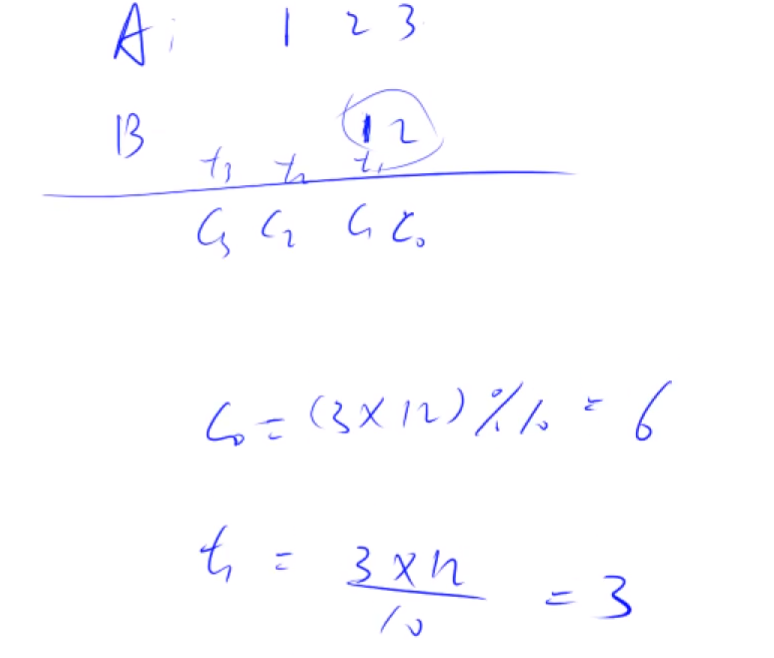 A: 1 2 3
B 12
t₃ t₂ t₁
C₃ C₂ C₁ C₀
C₀ = (3×12) % 10 = 6
t₁ = 3×12 / 10 = 3